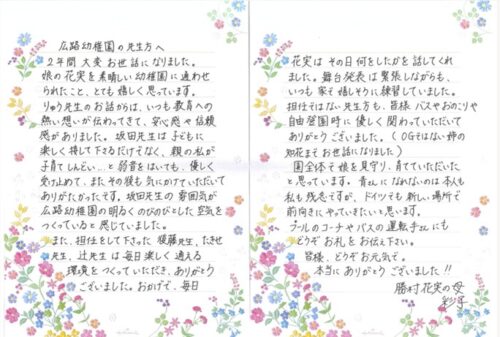 広路幼稚園の先生方へ
2年間 大変 お世話になりました。
娘の花実を素晴しい幼稚園に通わせ
られたこと、とても嬉しく思っています。
りゅう先生のお話からは、いつも教育への
熱い想いが伝わってきて、安心感や信頼
感がありました。坂田先生は子どもに
楽しく接して下さるだけでなく、親の私が
子育てしんどい…と弱音をはいても、優しく
受け止めて、またその後も気にかけていただいて
ありがたかったです。坂田先生の雰囲気が
広路幼稚園の明るくのびのびとした空気を
つくっていると感じていました。
また、担任をして下さった 後藤先生、たきせ
先生、辻先生は毎日楽しく通える
環境をつくっていただき、ありがとう
ございました。おかげで、毎日
花実は その日何をしたかを話してくれ
ました。舞台発表は緊張しながらも、
いつも家で嬉しそうに練習していました。
担任ではない先生方も、皆様 バスやおのこりや
自由登園時に優しく関わっていただいて
ありがとうございました。(OGではない姉の
知花まで お世話になりました)
園全体で娘を見守り、育てていただいた
と思っています。青さんになれないのは本人も
私も残念ですが、ドイツでも新しい場所で
前向きにやっていきたいと思います。
プールのコーチやバスの運転手さんにも
どうぞ お礼をお伝え下さい。
皆様、どうぞお元気で。
本当に ありがとうございました!!
勝村花実の母